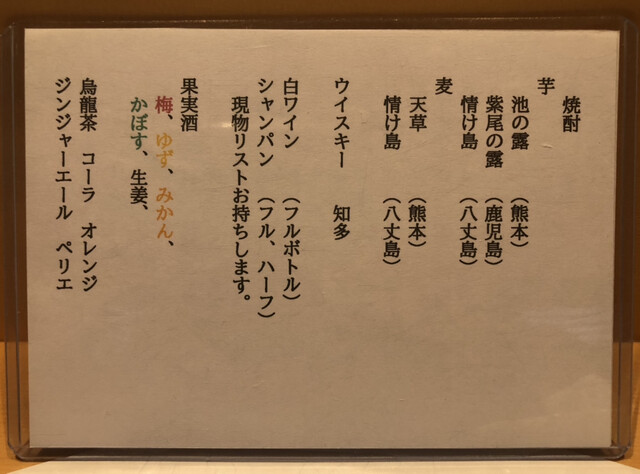 焼酎
芋
池の露 （熊本）
紫尾の露 （鹿児島）
情け島 （八丈島）
麦
天草 （熊本）
情け島 （八丈島）
ウイスキー 知多
白ワイン （フルボトル）
シャンパン （フル、ハーフ）
現物リストお持ちします。
果実酒
梅、ゆず、みかん、
かぼす、生姜、
烏龍茶 コーラ オレンジ
ジンジャーエール ペリエ